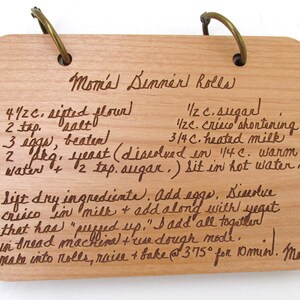 Mom's Dinner Rolls
4 1/2 c. sifted flour 1/2 c. sugar
2 tsp. salt 1/2 c. crisco shortening
3 eggs, beaten 3/4 c. heated milk
2 pkg. yeast (dissolved in 1/4 c. warm
water + 2 tsp. sugar.) Sit in hot water
Sift dry ingredients. Add eggs. Dissolve
crisco in milk + add along with yeast
that has "puffed up." I add all together
in bread machine + use dough mode.
Make into rolls, raise + bake @ 375° for 10 min.